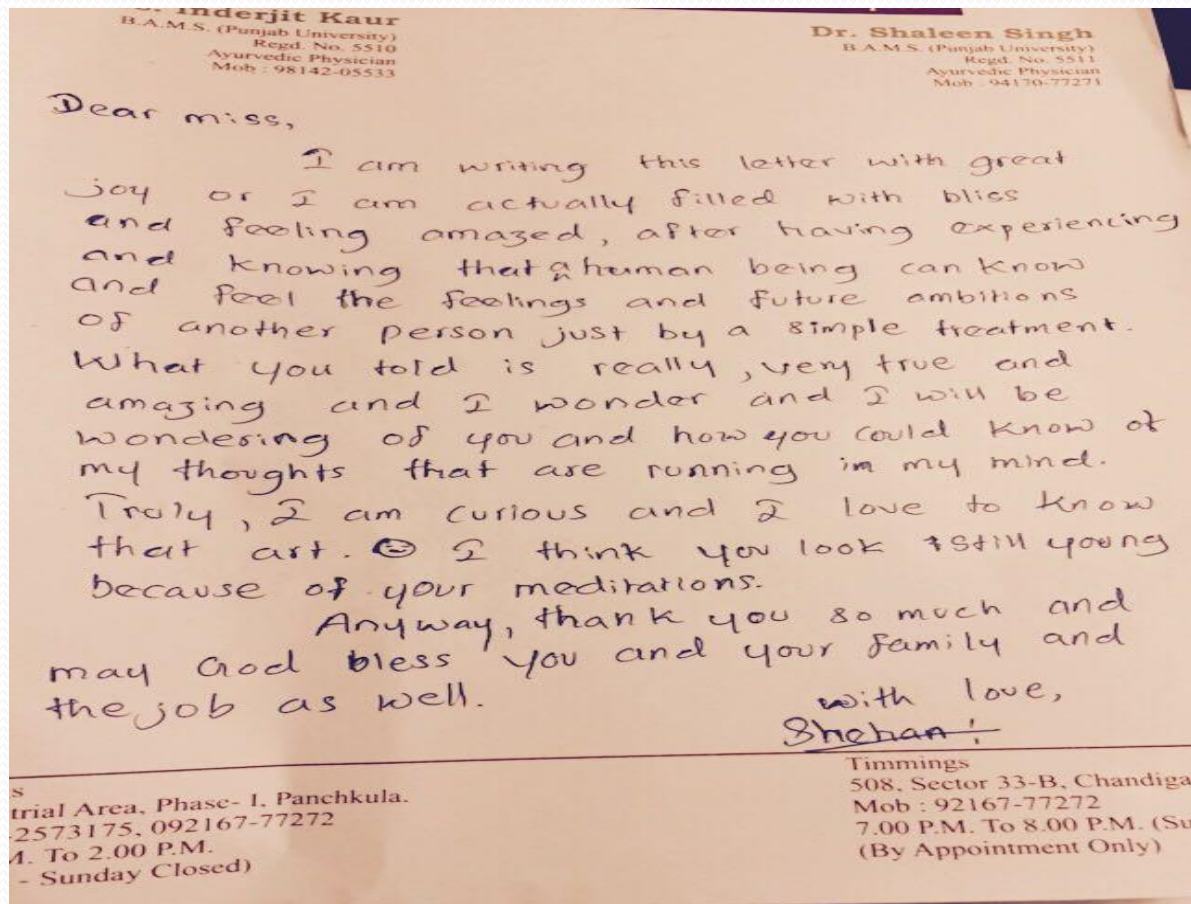 Inderjit Kaur
B.A.M.S. (Punjab University)
Regd. No. 5510
Ayurvedic Physician
Mob : 98142-05533
Dr. Shaleen Singh
B.A.M.S. (Punjab University)
Regd. No. 5511
Ayurvedic Physician
Mob : 94170-77271
Dear miss,
I am writing this letter with great
joy or I am actually filled with bliss
and feeling amazed, after having experiencing
and knowing that a human being can know
and feel the feelings and future ambitions
of another person just by a simple treatment.
What you told is really, very true and
amazing and I wonder and I will be
wondering of you and how you could know of
my thoughts that are running in my mind.
Truly, I am curious and I love to know
that art. ☺ I think you look still young
because of your meditations.
Anyway, thank you so much and
may God bless you and your family and
the job as well.
with love,
Shehan
s
trial Area, Phase- 1, Panchkula.
-2573175, 092167-77272
M. To 2.00 P.M.
- Sunday Closed)
Timmings
508, Sector 33-B, Chandiga
Mob : 92167-77272
7.00 P.M. To 8.00 P.M. (Su
(By Appointment Only)